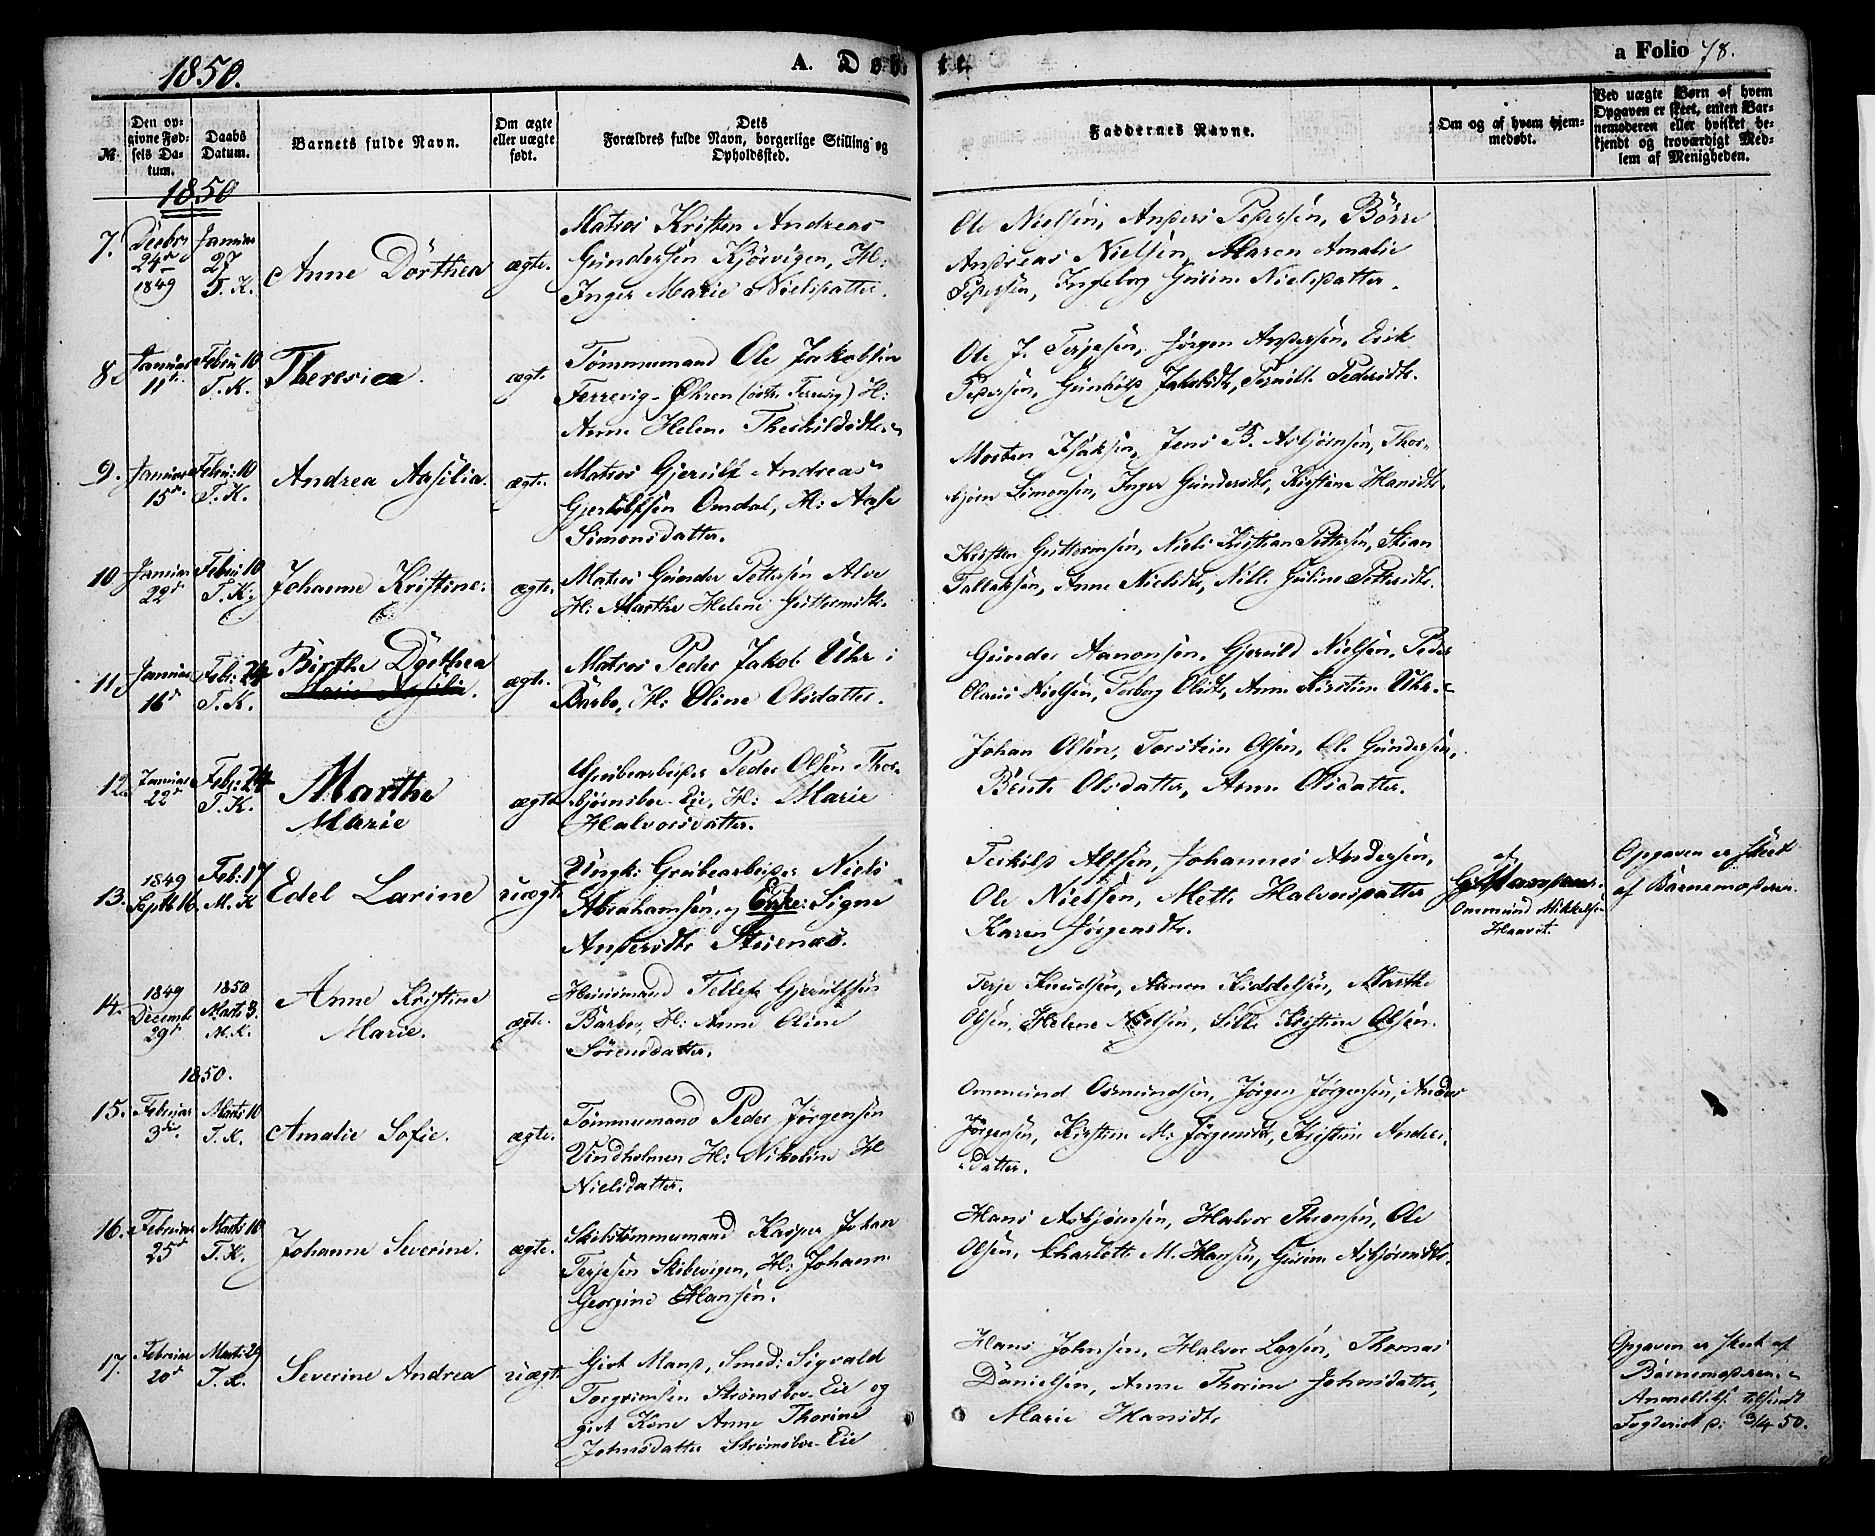 1850.
A. Døbte.
a Folio 78.
№
Den opgivne Fødsels Datum.
Daabs Datum.
Barnets fulde Navn.
Om ægte eller uægte født.
Dets Forældres fulde Navn, borgerlige Stilling og Opholdssted.
Faddernes Navne.
Om og af hvem hjemmedøbt.
Ved uægte Børn af hvem Opgaven er skeet, enten Barnemoderen eller hvilket bekjendt og troværdigt Medlem af Menigheden.
1850
7. Decbr 24de 1849
Januar 27 T. K.
Anne Dorthea
ægte.
Matros Kristen Andreas
Gundersen Kjörvigen, H:
Inger Marie Nielsdatter.
Ole Nielsen, Anders Pedersen, Børre
Andreas Nielsen, Maren Amalie
Pedersen, Ingeborg Gurine Nielsdatter.
8. Januar 11te
Febru 10 T. K.
Theresia.
ægte
Tømmermand Ole Jakobsen
Ferrevig-Øhren (östre Ferrevig) H:
Anne Helene Therkildsdtr.
Ole J. Terjesen, Jørgen Andersen, Erik
Pedersen, Gunhild Jakobsdt, Pernille Pedersdtr.
9. Januar 15de
Febru: 10 T. K.
Andrea Aasilia.
ægte.
Matros Gjerulf Andreas
Gjerulfsen Omdal, H: Aase
Simonsdatter.
Morten Isaksen, Jens B. Asbjørnsen, Thor-
bjørn Simonsen, Inger Gundersdtr, Kirstine Hansdtr.
10. Januar 22de
Febru 10 T. K.
Johanne Kristine.
ægte.
Matros Gunder Pettersen Alve
H: Marthe Helene Guttormsdtr.
Kristen Guttormsen, Niels Kristian Pettersen, Stian
Tallaksen, Anne Nielsdtr, Nille Guline Pettersdtr.
11. Januar 16de
Feb: 24 T. K.
Birthe Dorthea
Marie Aasilie.
ægte.
Matros Peder Jakob Uhr i
Barbo, H: Oline Olsdatter.
Gunder Aanonsen, Gjeruld Nielsen, Peder
Olaus Nielsen, Torborg Olsdtr, Anne Kirstine Uhr.
12. Januar 22de
Feb: 24 T. K.
Marthe
Marie
ægte
Grubearbeider Peder Olsen Thor-
bjørnsboe-Eie, H: Marie
Halvorsdatter.
Johan Olsen, Torstein Olsen, Ole Gundersen,
Bente Olsdatter, Anne Olsdatter.
13. 1849 Septbr 16
Feb: 17 M. K
Edel Larine
uægte
Ungk: Grubearbeider Niels
Abrahamsen, og Enke: Signe
Andersdtr Steenæs.
Terkild Alfsen, Johannes Andersen,
Ole Nielsen, Mette Halvorsdatter
Karen Jørgensdtr.
af
Ommund Mikkelsen
Haavet.
Opgaven er skeet
af Barnemoderen.
14. 1849 Decemb 29de
1850 Marts 3. M. K.
Anne Kristine
Marie.
ægte.
Huusmand Tellef Gjerulfsen
Barbo, H: Anne Oline
Sörensdatter.
Terje Knudsen, Aanon Kiddelsen, Marthe
Olsen, Helene Nielsen, Sille Kristine Olsen.
1850.
15. Februar 3die
Marts 10 T. K.
Amalie Sofie.
ægte.
Tømmermand Peder Jørgensen
Vindholmen H: Nikoline H
Nielsdatter.
Ommund Osmundsen, Jørgen Jørgensen, Anders
Jørgensen, Kirstine M: Jørgensdt, Kristine Anders-
datter.
16. Februar 25de
Marts 10 T. K.
Johanne Severine.
ægte.
Skibstømmermand Kasper Johan
Terjesen Skibevigen, H: Johanne
Georgine Hansen.
Hans Asbjørnsen, Halvor Thronsen, Ole
Olsen, Charlotte M. Hansen, Gurine Asbjørnsdtr.
17. Februar 20de
Marts 29 T. K.
Severine Andrea
uægte
Gift Mand, Smed: Sigvald
Torgrimsen Strømsboe-Eie og
gift Kone Anne Thorine
Johnsdatter Strømsboe-Eie
Hans Johnsen, Halvor Larsen, Thomas
Danielsen, Anne Thorine Johnsdatter,
Marie Hansdtr
Opgaven er skeet af
Barnemoderen.
Anmeldt til
Fogderiet d: 3/4 50.